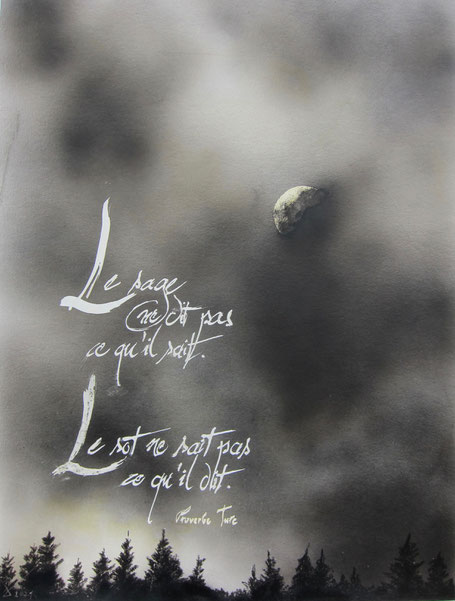 Le sage
ne dit pas
ce qu'il sait.
Le sot ne sait pas
ce qu'il dit.
Proverbe Turc